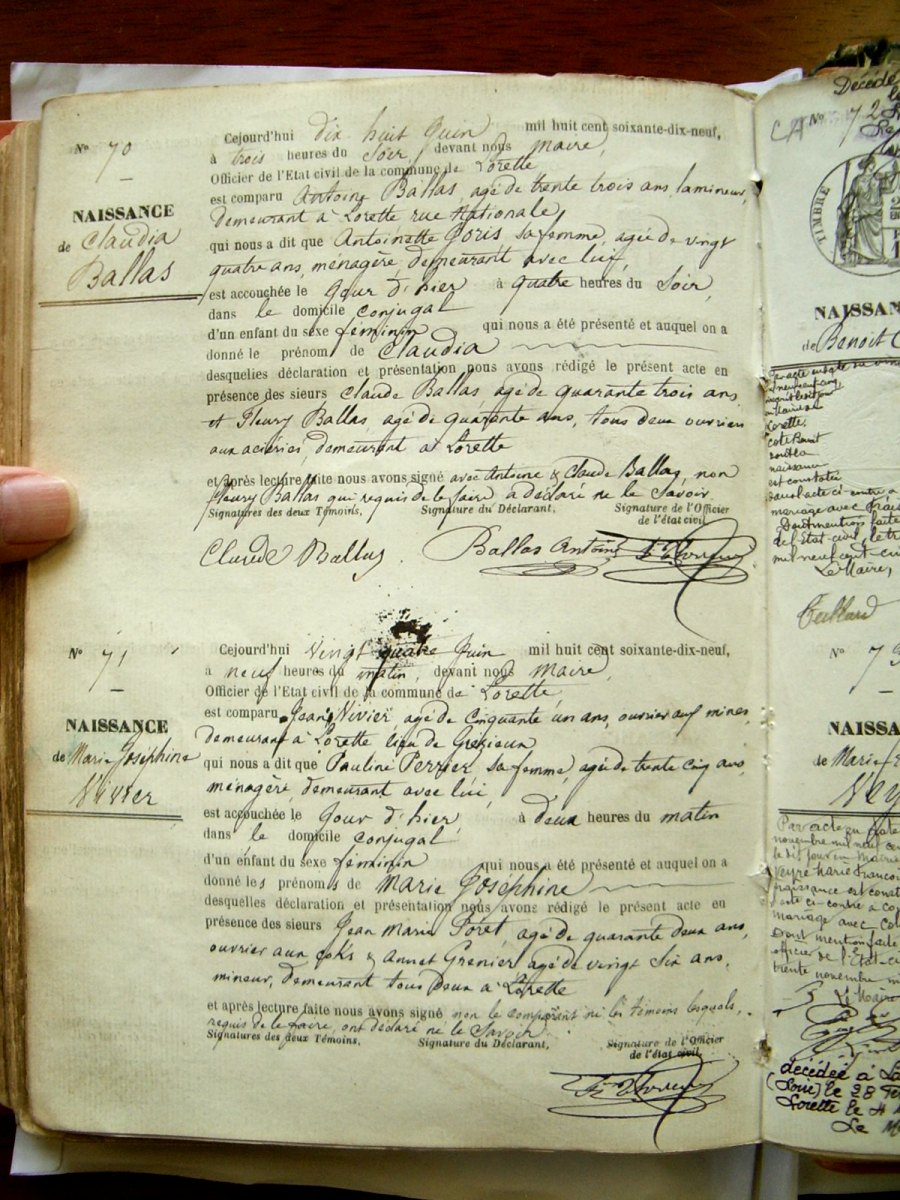 N° 70
NAISSANCE
de Claudia
Ballas
Cejourd'hui dix huit Juin mil huit cent soixante-dix-neuf,
à trois heures du Soir, devant nous Maire,
Officier de l'Etat civil de la commune de Lorette
est comparu Antoine Ballas, agé de trente trois ans, lamineur,
demeurant à Lorette rue Nationale
qui nous a dit que Antoinette Goris sa femme, agée de vingt
quatre ans, ménagère, demeurant avec lui,
est accouchée le Jour d'hier à quatre heures du Soir,
dans le domicile conjugal
d'un enfant du sexe féminin qui nous a été présenté et auquel on a
donné le prénom de Claudia
desquelles déclaration et présentation nous avons rédigé le présent acte en
présence des sieurs Claude Ballas, agé de quarante trois ans
et Fleury Ballas, agé de quarante ans, tous deux ouvriers
aux aciéries, demeurant at Lorette
et après lecture faite nous avons signé avec Antoine & Claude Ballas, non
Fleury Ballas qui requis de le faire a déclaré ne le Savoir.
Signatures des deux Témoins, Signature du Déclarant, Signature de l'Officier
de l'état civil,
Claude Ballas Ballas Antoine
N° 71
NAISSANCE
de Marie Joséphine
Vivier
Cejourd'hui Vingt quatre Juin mil huit cent soixante-dix-neuf,
à neuf heures du matin, devant nous Maire,
Officier de l'Etat civil de la commune de Lorette
est comparu Jean Vivier agé de Cinquante un ans, ouvrier aux mines,
demeurant à Lorette lieu de Grézieux
qui nous a dit que Pauline Perrier sa femme, agée de trente cinq ans,
ménagère, demeurant avec lui,
est accouchée le Jour d'hier à deux heures du matin
dans le domicile conjugal
d'un enfant du sexe féminin qui nous a été présenté et auquel on a
donné les prénoms de Marie Joséphine
desquelles déclaration et présentation nous avons rédigé le présent acte en
présence des sieurs Jean Marie Foret, agé de quarante deux ans,
ouvrier aux coks & Annet Grenier agé de vingt Six ans,
mineur, demeurant tous deux à Lorette
et après lecture faite nous avons signé non le comparant ni les témoins lesquels,
requis de le faire, ont déclaré ne le Savoir.
Signatures des deux Témoins, Signature du Déclarant, Signature de l'Officier
de l'état civil,
Décédé
N° 72
TIMBRE
NAISSAN
de Benoit
naissance
est constatée
mariage avec
Dont mention faite
de l'Etat-civil, le
mil neuf cent
Le Maire,
N° 7
NAISSA
de Marie
Par acte en date
novembre mil neuf
mariage avec
Dont mention faite
officier de l'Etat-ci
trente novembre
décédée à
(Loire) le 28
Lorette le
Le M